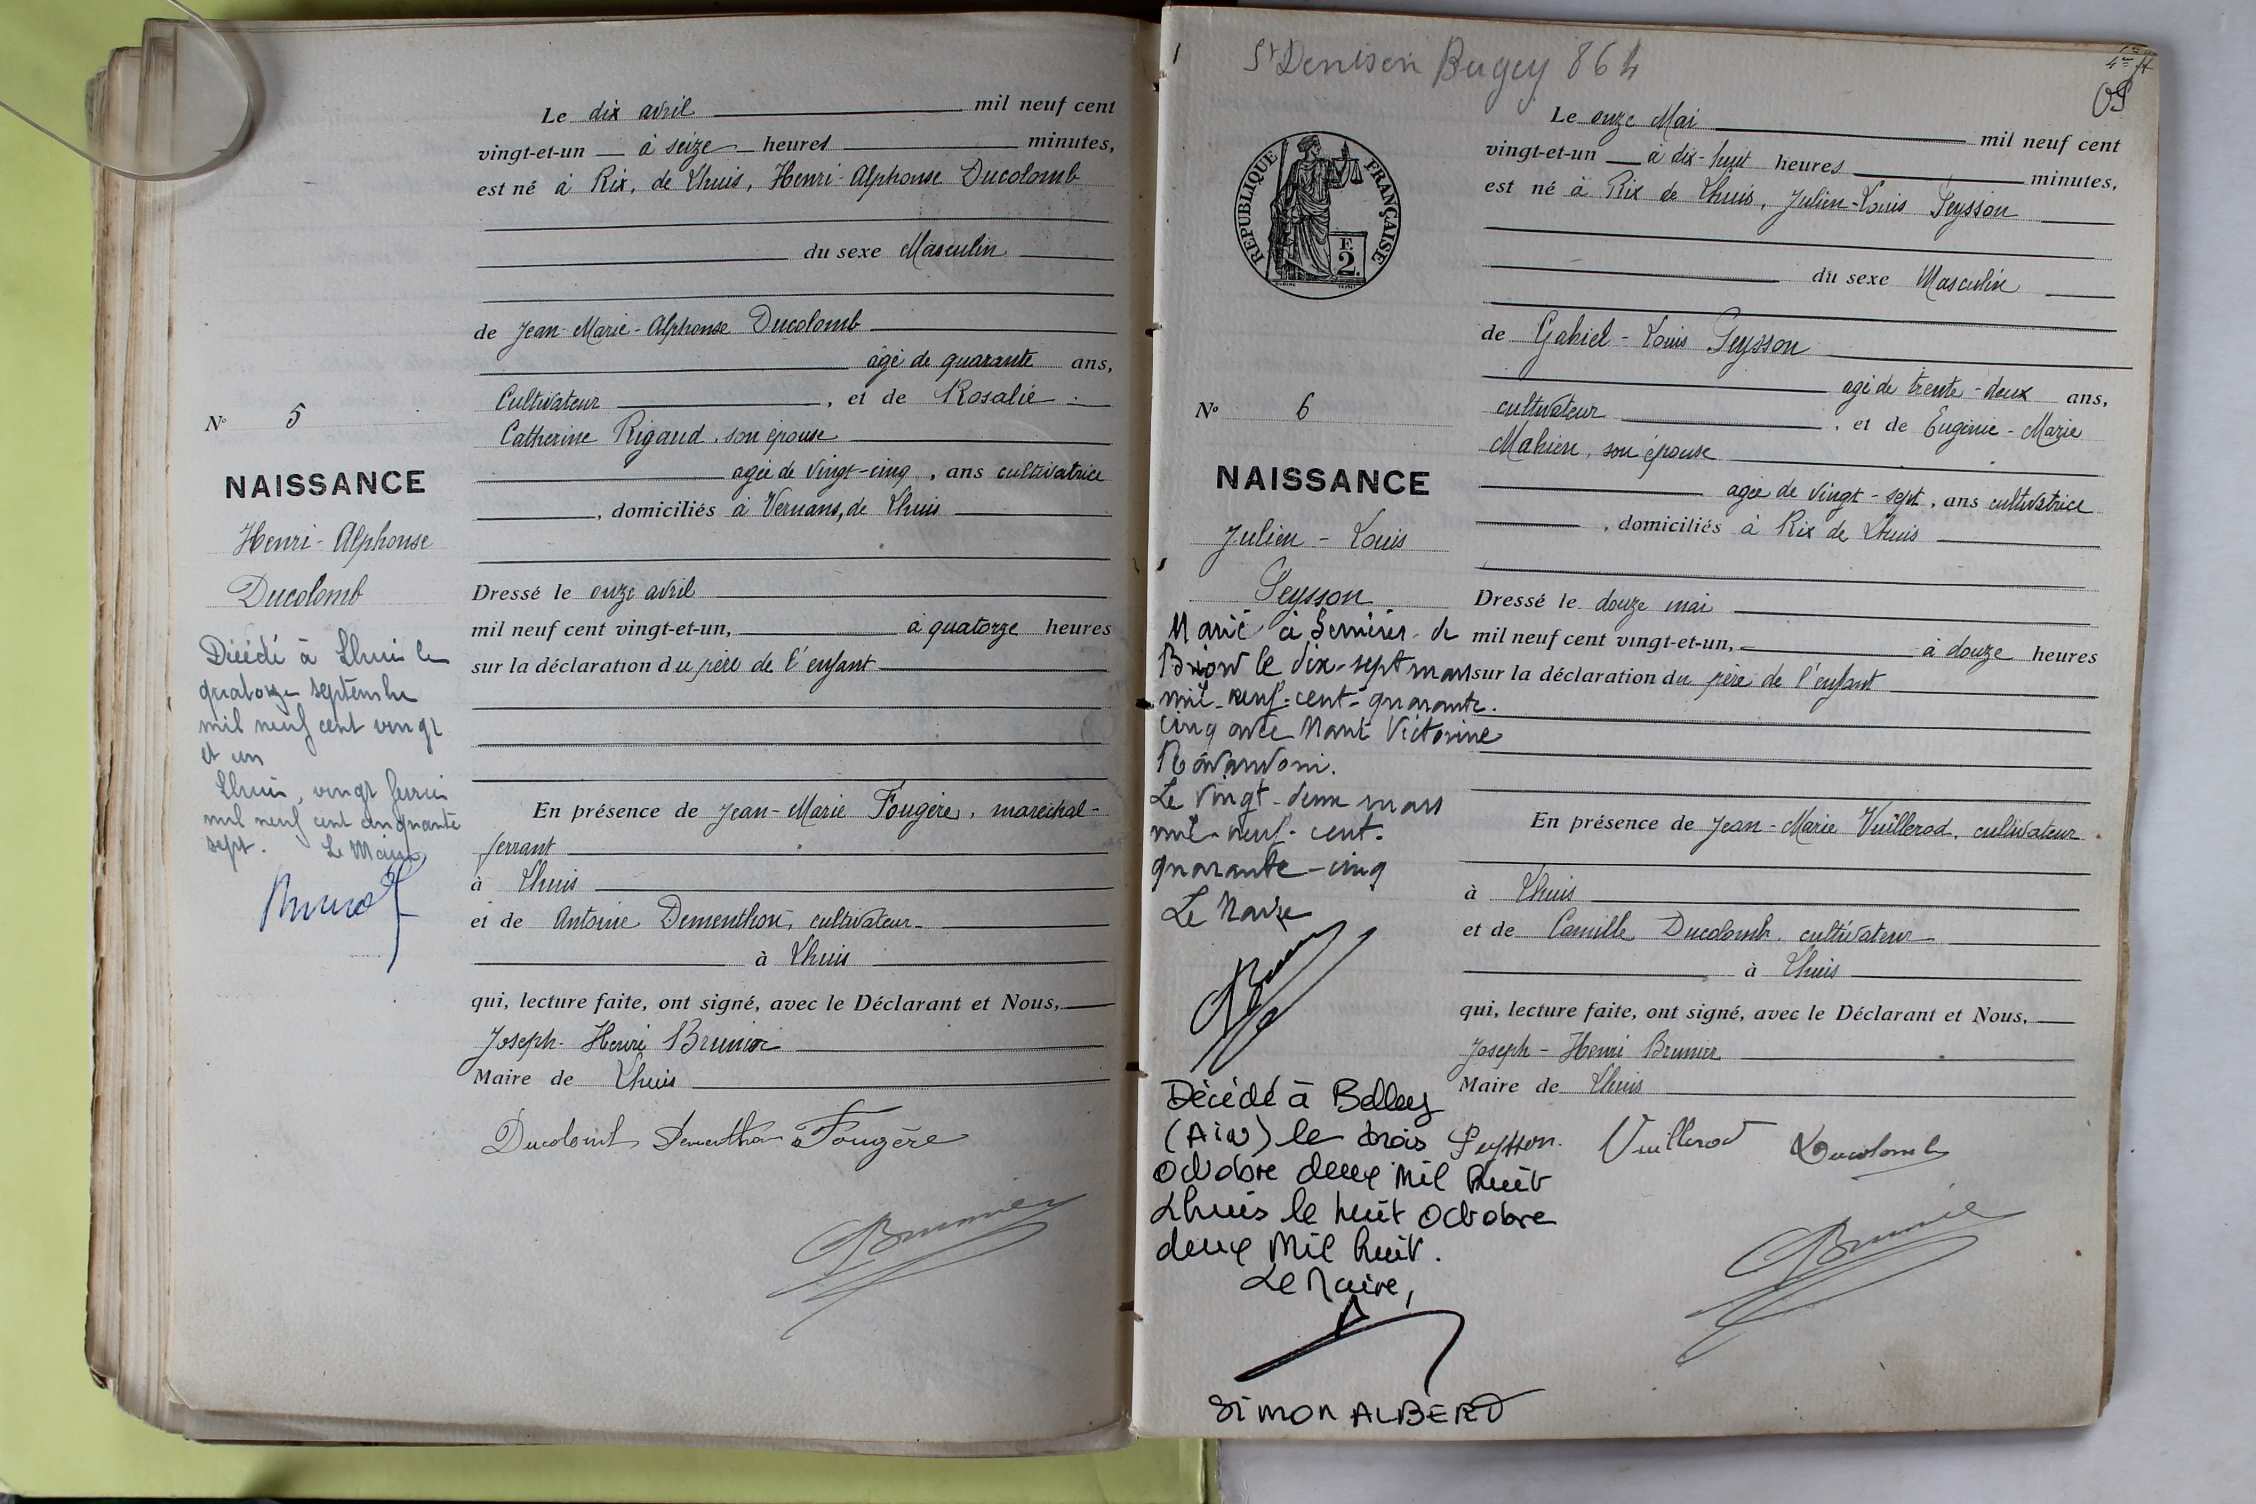 Le dix avril mil neuf cent
vingt-et-un à seize heures minutes,
est né à Rix, de Lhuis, Henri-Alphonse Ducolomb
du sexe Masculin
de Jean-Marie-Alphonse Ducolomb
âgé de quarante ans,
Cultivateur, et de Rosalie
Catherine Rigaud, son épouse
agée de vingt-cinq, ans cultivatrice
, domiciliés à Vernans, de Lhuis
Dressé le onze avril
mil neuf cent vingt-et-un, à quatorze heures
sur la déclaration du père de l'enfant
En présence de Jean-Marie Fougère, maréchal-
ferrant
à Lhuis
et de Antoine Dementhon, cultivateur
à Lhuis
qui, lecture faite, ont signé, avec le Déclarant et Nous,
Joseph-Henri Brunier
Maire de Lhuis
Ducolomb Dementhon Fougère
Brunier
N° 5
NAISSANCE
Henri-Alphonse
Ducolomb
Décédé à Lhuis le
quatorze septembre
mil neuf cent vingt
et un
Lhuis, vingt
mil neuf cent cinquante
sept. Le Maire
St Denis en Bugey 864
Le onze Mai mil neuf cent
vingt-et-un à dix-huit heures minutes,
est né à Rix de Lhuis, Julien-Louis Peysson
du sexe Masculin
de Gabiel-Louis Peysson
agé de trente-deux ans,
cultivateur, et de Eugénie-Marie
Mahieu, son épouse
agée de vingt-sept, ans cultivatrice
, domiciliés à Rix de Lhuis
Dressé le douze mai
mil neuf cent vingt-et-un, à douze heures
sur la déclaration du père de l'enfant
En présence de Jean-Marie Vuillerod, cultivateur
à Lhuis
et de Camille Ducolomb, cultivateur
à Lhuis
qui, lecture faite, ont signé, avec le Déclarant et Nous,
Joseph-Henri Brunier
Maire de Lhuis
Peysson. Vuillerod Ducolomb
Brunier
RÉPUBLIQUE FRANÇAISE
F.
2.
N° 6
NAISSANCE
Julien-Louis
Peysson
Marié à Serrières-de
Briord le dix-sept mars
mil-neuf-cent-quarante.
cinq avec Victorine
Le vingt-deux mars
mil-neuf-cent-
quarante-cinq
Le Maire
Décédé à Belley
(Ain) le trois
octobre deux mil huit
Lhuis le huit octobre
deux mil huit.
Le Maire,
SIMON ALBERT